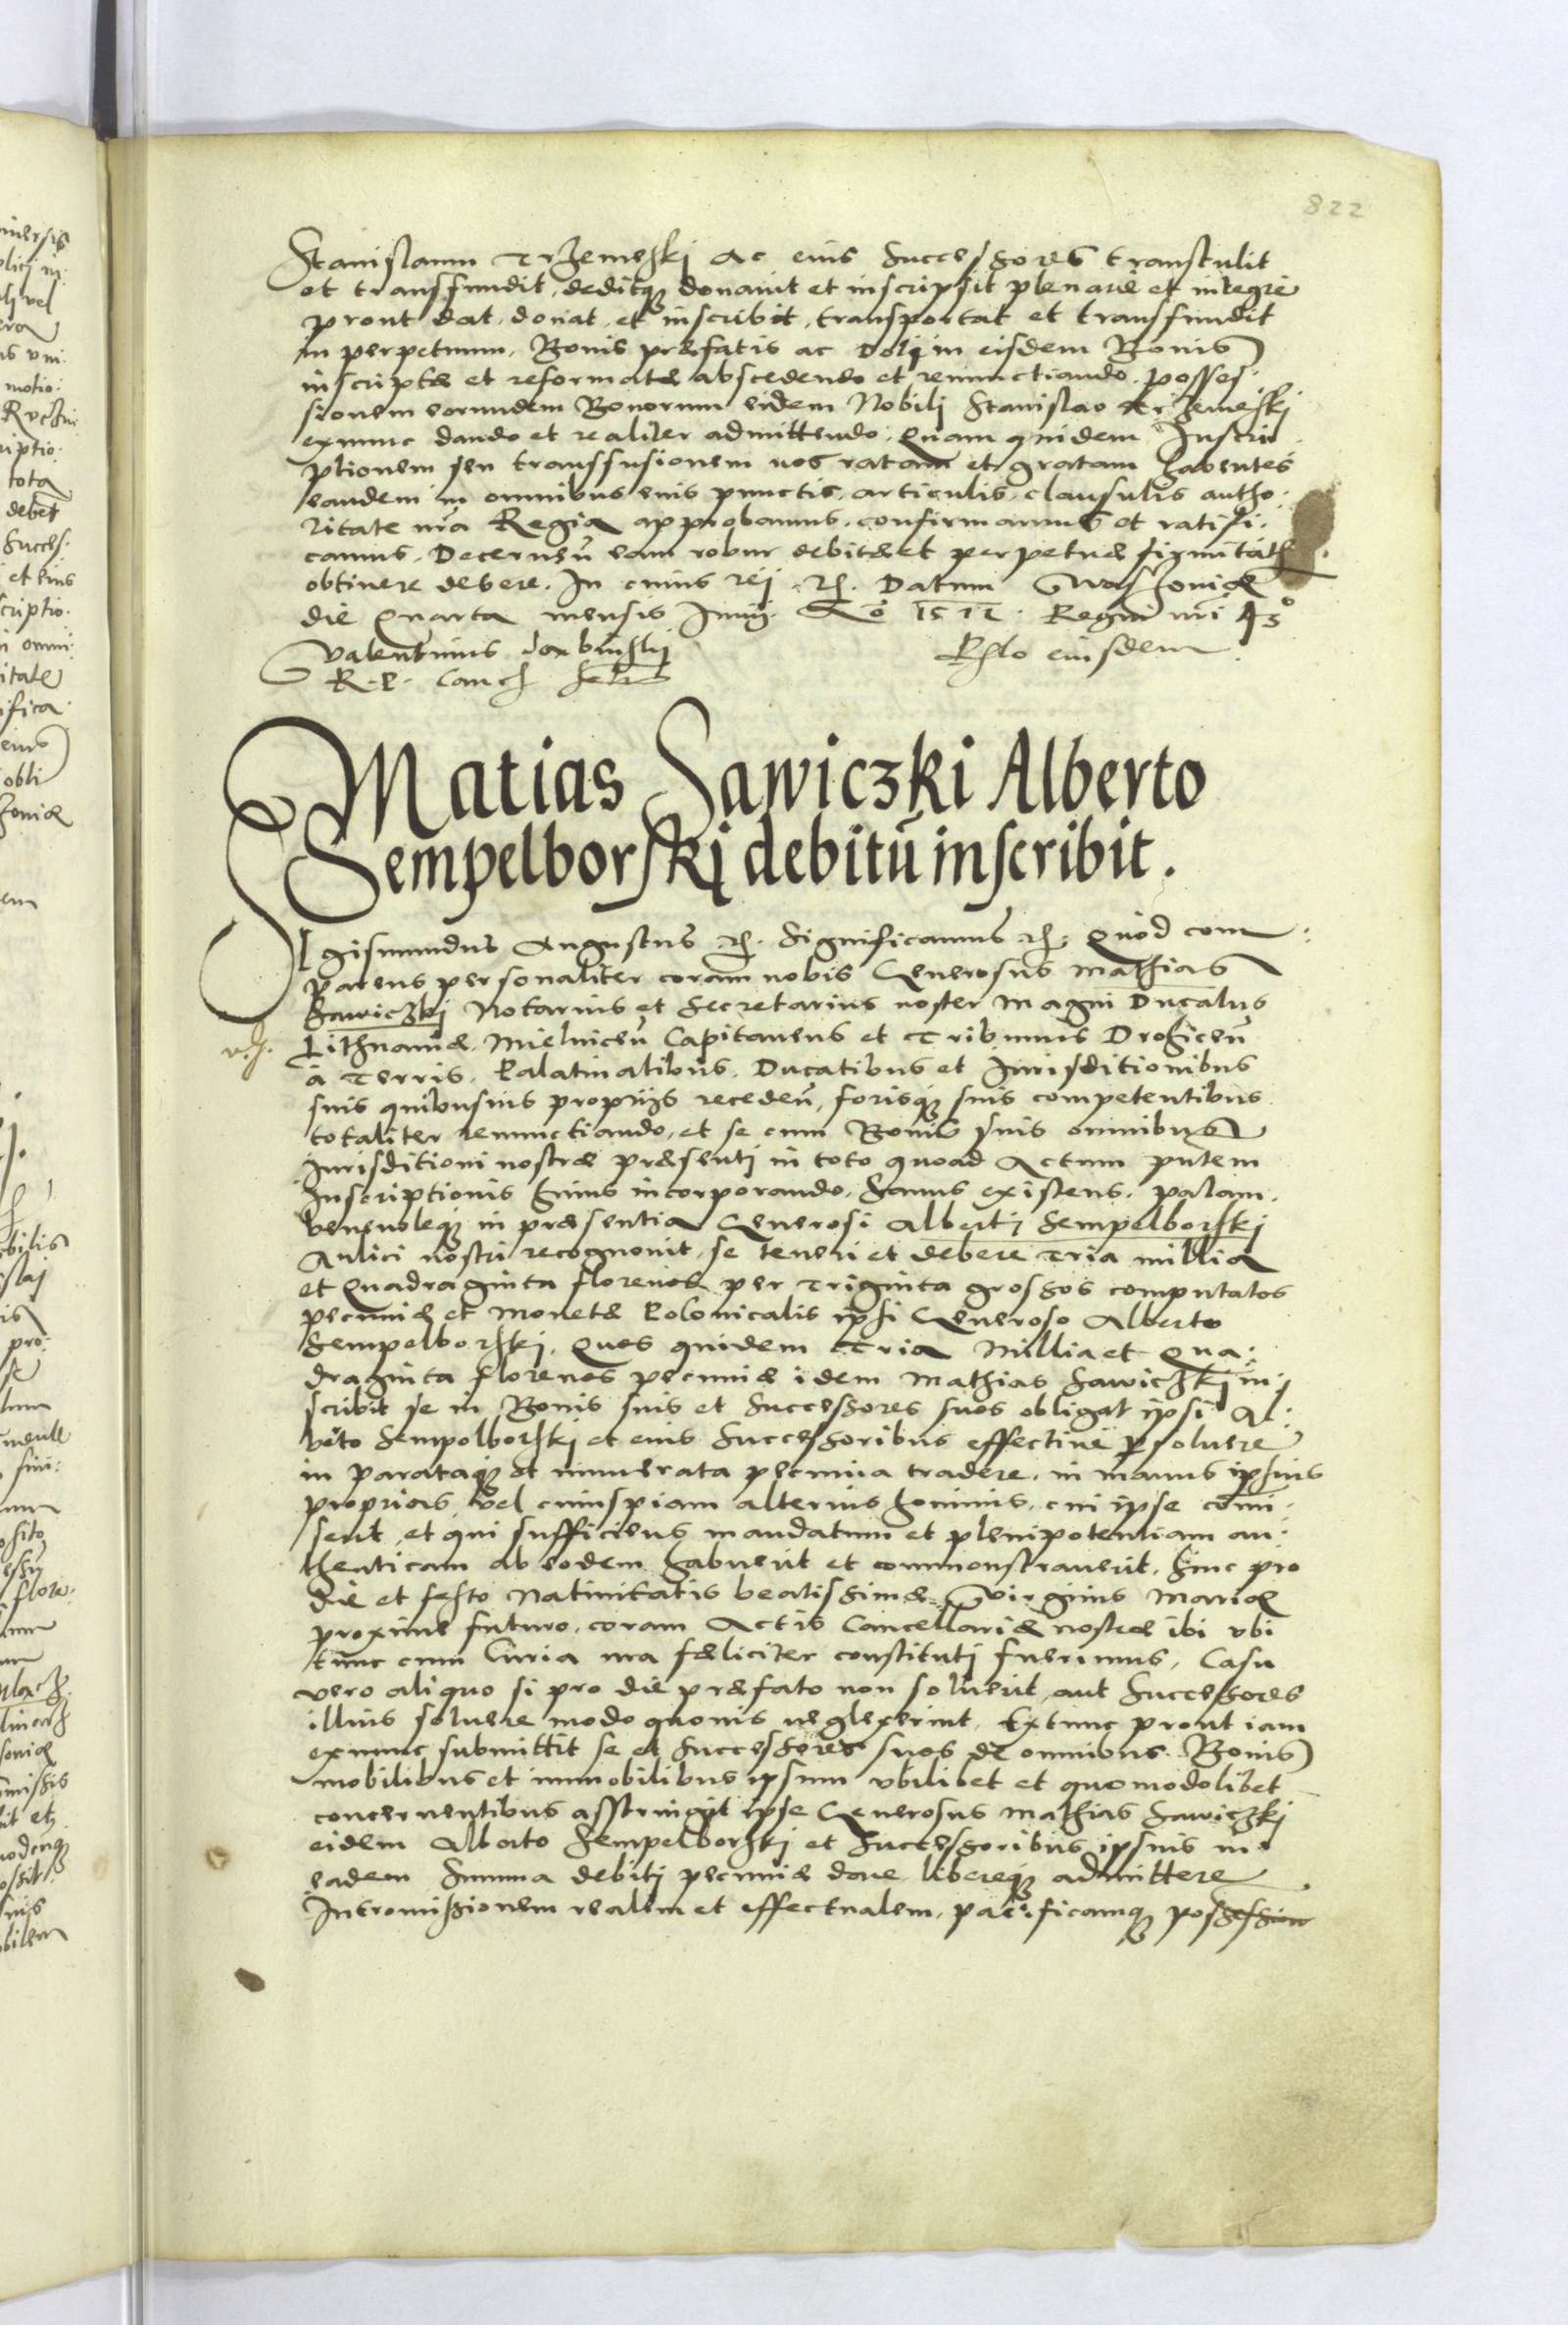 822
Stanislaum Trzemeski ac eius Successores transtulit
et transfundit, deditq3 donavit et inscripsit plenarie et integre
prout dat, donat, et inscribit, transportat et transfundit
in perpetuum. Bonis præfatis ac in eisdem Bonis
inscriptæ et reformatæ abscedendo et renunctiando. posses:
sionem eorundem Bonorum eidem Nobili Stanislao Trzemeski
exnunc dando et realiter admittendo. Quam quidem Inscri
ptionem seu transfusionem nos ratam et gratam habentes
eandem in omnibus eius punctis, articulis, clausulis autho:
ritate nra Regia approbamus, confirmamus et ratifi:
camus. Decerneñ eam robur debitæ et perpetuæ firmitatis
obtinere debere. In cuius rei etc. Datum Warschoniæ
die Quarta mensis Junij. Ao 1572. Regni nri 43°
Valentinus Dąbinskij
R. P. Canc
Rlo eiusdem
Matias Sawiczki Alberto
Sempelborskj debitū inscribit.
SIgismundus Augustus etc. Significamus etc. Quod com:
parens personaliter coram nobis Generosus Mathias
Sawiczkj Notarius et Secretarius noster Magni Ducatus
Lithuaniæ, Mielniceñ Capitaneus et Tribunus Drohiceñ
à Terris, Palatinatibus, Ducatibus et Jurisditionibus
suis quibusuis proprijs recedeñ, forisq3 suis competentibus
totaliter renunctiando, et se cum Bonis suis omnibus
Jurisditioni nostræ præsentj in toto quoad Actum pntem
Inscriptionis huius incorporando, Sanus existens, palam
beneuoleq3 in præsentia Generosi Albertj Sempelborskj
Aulici nostri recognouit, se teneri et debere Tria millia
et Quadraginta florenos per Triginta grossos computatos
pecuniæ et Monetæ Polonicalis ipsi Generoso Alberto
Sempelborskj. Quos quidem Tria Millia et Qua:
draginta florenos pecuniæ idem Mathias Sawiczkj in:
scribit se in Bonis suis et Successores suos obligat ipsi Al:
berto Sempolborskj et eius Successoribus effectiue psoluere
in parataq3 et numerata pecunia tradere, in manus ipsius
proprias vel cuiuspiam alterius hominis, cui ipse comi:
serit, et qui sufficiens mandatum et plenipotentiam au:
thenticam ab eodem habuerit et commonstrauerit. hinc pro
die et festo Natiuitatis beatissimæ Virginis Mariæ
proxime futuro, coram Actis Cancellariæ nostræ ibi vbi
tunc cum Curia nra fæliciter constitutj fuerimus. Casu
vero aliquo si pro die præfato non soluerit, aut Successores
illius soluere modo quouis neglexerint. Extunc prout iam
exnunc submittit se et Successores suos de omnibus Bonis
mobilibus et immobilibus ipsum vbilibet et quomodolibet
concernentibus asstringit ipse Generosus Mathias Sawiczkj
eidem Alberto Sempelborskj et Successoribus ipsius in
eadem Summa debitj pecuniæ dare libereq3 admittere
Intromissionem realem et effectualem, pacificamq3 possession